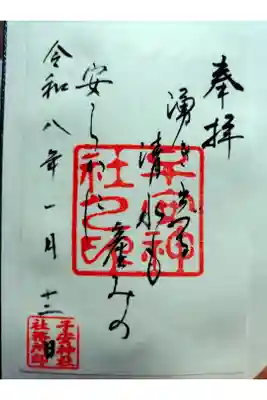 奉拝
湧き出る
清水も
安ら 産みの
令和八年一月十二日
子安神
社之印
子安神社
社務所印